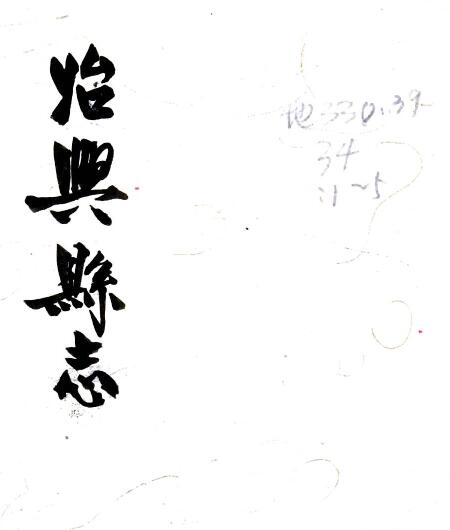 始興縣志
地330.39
34
:1~5